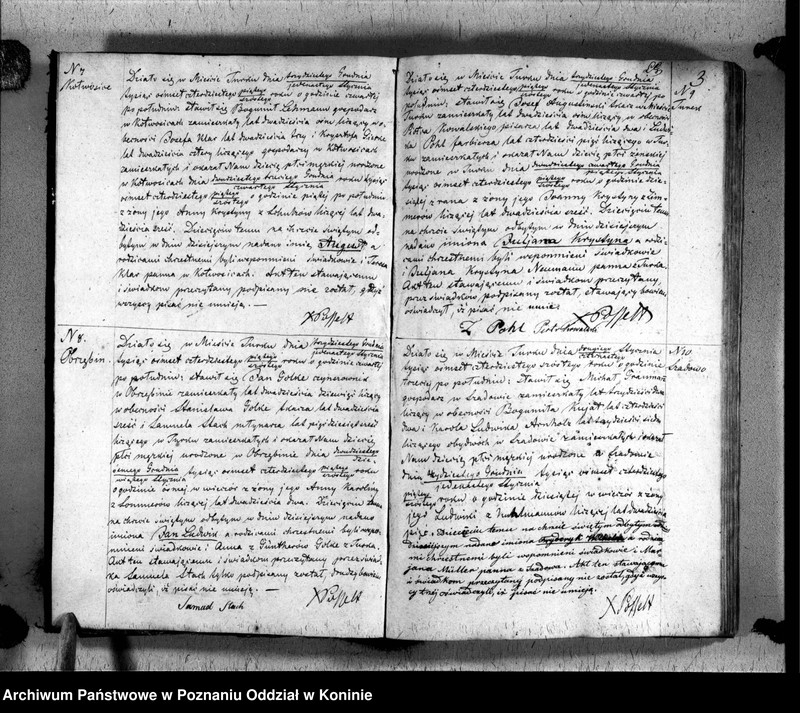 N 7
Kotwasice
Działo się w Mieście Turku dnia trzydziestego Grudnia
jedenastego Stycznia
tysiąc ośmset czterdziestego piątego szóstego roku o godzinie czwartej
po południu; stawił się Bogumił Lehmann gospodarz
w Kotwasicach zamieszkały lat dwadzieścia ośm liczący w o-
becności Józefa Klar lat dwadzieścia trzy i
lat dwadzieścia cztery liczącego gospodarzy w Kotwasicach
zamieszkałych i okazał Nam dziecię płci męskiej urodzone
w Kotwasicach dnia dwudziestego trzeciego Grudnia roku tysiąc
czwartego Stycznia
ośmset czterdziestego piątego szóstego o godzinie piątej po południu
z żony jego Anny Krystyny z liczącej lat dwa-
dzieścia sześć. Dziecięciu temu na chrzcie świętym od-
bytym w dniu dzisiejszym nadano imię August a
rodzicami chrzestnemi byli wspomnieni świadkowie i Teresa
Klar panna w Kotwasicach. Akt ten stawającemu
i świadkom przeczytany podpisany nie został, gdyż
wszyscy pisać nie umieją. —
X Posselt
N 8.
Obrzębin.
Działo się w Mieście Turku dnia trzydziestego Grudnia
jedenastego Stycznia
tysiąc ośmset czterdziestego piątego szóstego roku o godzinie czwartej
po południu; stawił się Jan Golke czynszownik
w Obrzębinie zamieszkały lat dwadzieścia dziewięć liczący
w obecności Stanisława Golke tkacza lat dwadzieścia
sześć i Samuela Stach młynarza lat pięćdziesiąt sześć
liczącego w Turku zamieszkałych i okazał Nam dziecię
płci męskiej urodzone w Obrzębinie dnia dwudziestego
siódmego Grudnia tysiąc ośmset czterdziestego piątego szóstego roku
Stycznia
o godzinie ósmej w wieczór z żony jego Anny Karoliny
z liczącej lat dwadzieścia dwa. Dziecięciu temu
na chrzcie świętym odbytym w dniu dzisiejszym nadano
imiona Jan Ludwik a rodzicami chrzestnemi byli wspo-
mnieni świadkowie i Anna z Güntherów Golke z Turku.
Akt ten stawającemu i świadkom przeczytany przez świad-
ka Samuela Stach tylko podpisany został, drudzy bowiem
oświadczyli, iż pisać nie umieją. —
Samuel Stach
X Posselt
3
N 9
Turek
Działo się w Mieście Turku dnia trzydziestego Grudnia
jedenastego Stycznia
tysiąc ośmset czterdziestego piątego szóstego roku o godzinie czwartej po
południu; stawił się Józef Augustynski tkacz w Mieście
Turku zamieszkały lat dwadzieścia ośm liczący, w obecności
Piotra Kowalskiego pisarza lat dwadzieścia dwa i
Pohl farbierza lat czterdzieści pięć liczącego w Tur-
ku zamieszkałych i okazał Nam dziecię płci żeńskiej
urodzone w Turku dnia dwudziestego czwartego Grudnia
piątego Stycznia
tysiąc ośmset czterdziestego piątego szóstego roku o godzinie dzie-
siątej z rana z żony jego Joanny Krystyny z Zim-
merów liczącej lat dwadzieścia sześć. Dziecięciu temu
na chrzcie świętym odbytym w dniu dzisiejszym
nadano imiona Juljana Krystyna a rodzi-
cami chrzestnemi byli wspomnieni świadkowie
i Juljana Krystyna Neumann panna z Turku.
Akt ten stawającemu i świadkom przeczytany,
przez świadków podpisany został, stawający bowiem
oświadczył, iż pisać nie umie.
X Posselt
Pohl Piotr Kowalski
N 10
Szadow
Działo się w Mieście Turku dnia drugiego Stycznia
czternastego
tysiąc ośmset czterdziestego szóstego roku o godzinie
trzeciej po południu; stawił się Michał
gospodarz w Szadowie zamieszkały lat trzydzieści
liczący w obecności Bogumiła Kujat lat czterdzieści
dwa i Karola Ludwika lat trzydzieści siedm
liczącego obydwóch w Szadowie zamieszkałych i okazał
Nam dziecię płci męskiej urodzone w Szadowie
dnia trzydziestego Grudnia tysiąc ośmset czterdziestego
jedenastego Stycznia
piątego szóstego roku o godzinie dziesiątej w wieczór z żony
jego Ludwiki z liczącej lat dwadzieścia
pięć. Dziecięciu temu na chrzcie świętym odbytym w dniu
dzisiejszym nadano imiona Fryderyk a rodzica-
mi chrzestnemi byli wspomnieni świadkowie i Mar-
janna Müller panna z Szadowa. Akt ten stawającemu
i świadkom przeczytany podpisany nie został, gdyż wszys-
cy trzej oświadczyli, iż pisać nie umieją.
X Posselt
Archiwum Państwowe w Poznaniu Oddział w Koninie